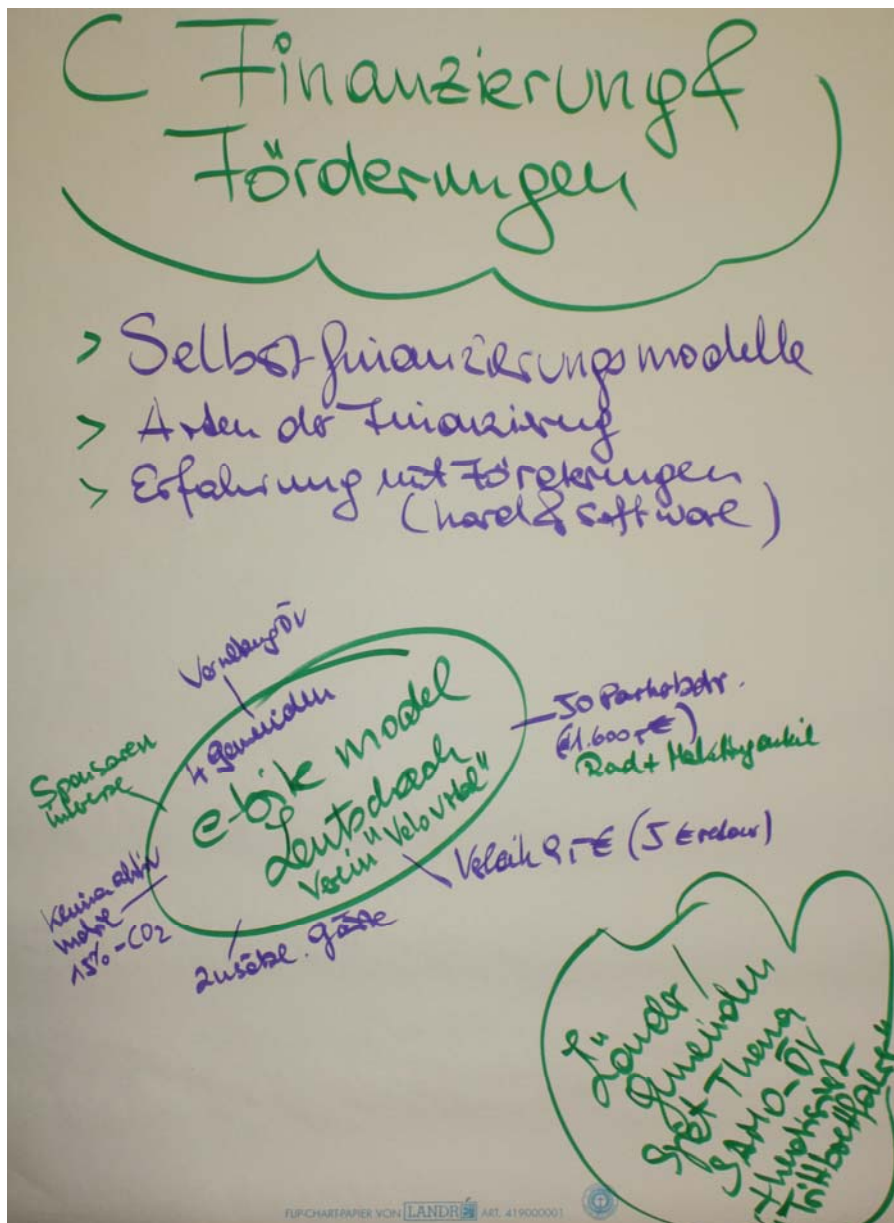 C Finanzierung &
Förderungen
> Selbstfinanzierungsmodelle
> Arten der Finanzierung
> Erfahrung mit Förderungen
(hard & software)
Vernetzung ÖV
4 Gemeinden
Sponsoren
e-bike model
Leutschach
Verein "Velo Vital"
50 Parkobstr.
(á1.600,- €)
Rad +
Verleih 9,- € (5 € retour)
15% -CO2
zusätzl. Gäste
Länder /
Gemeinden
Thema
SAMO-ÖV
"Trittbrettfahrer"
FLIP-CHART-PAPIER VON LANDRÉ ART. 419000001